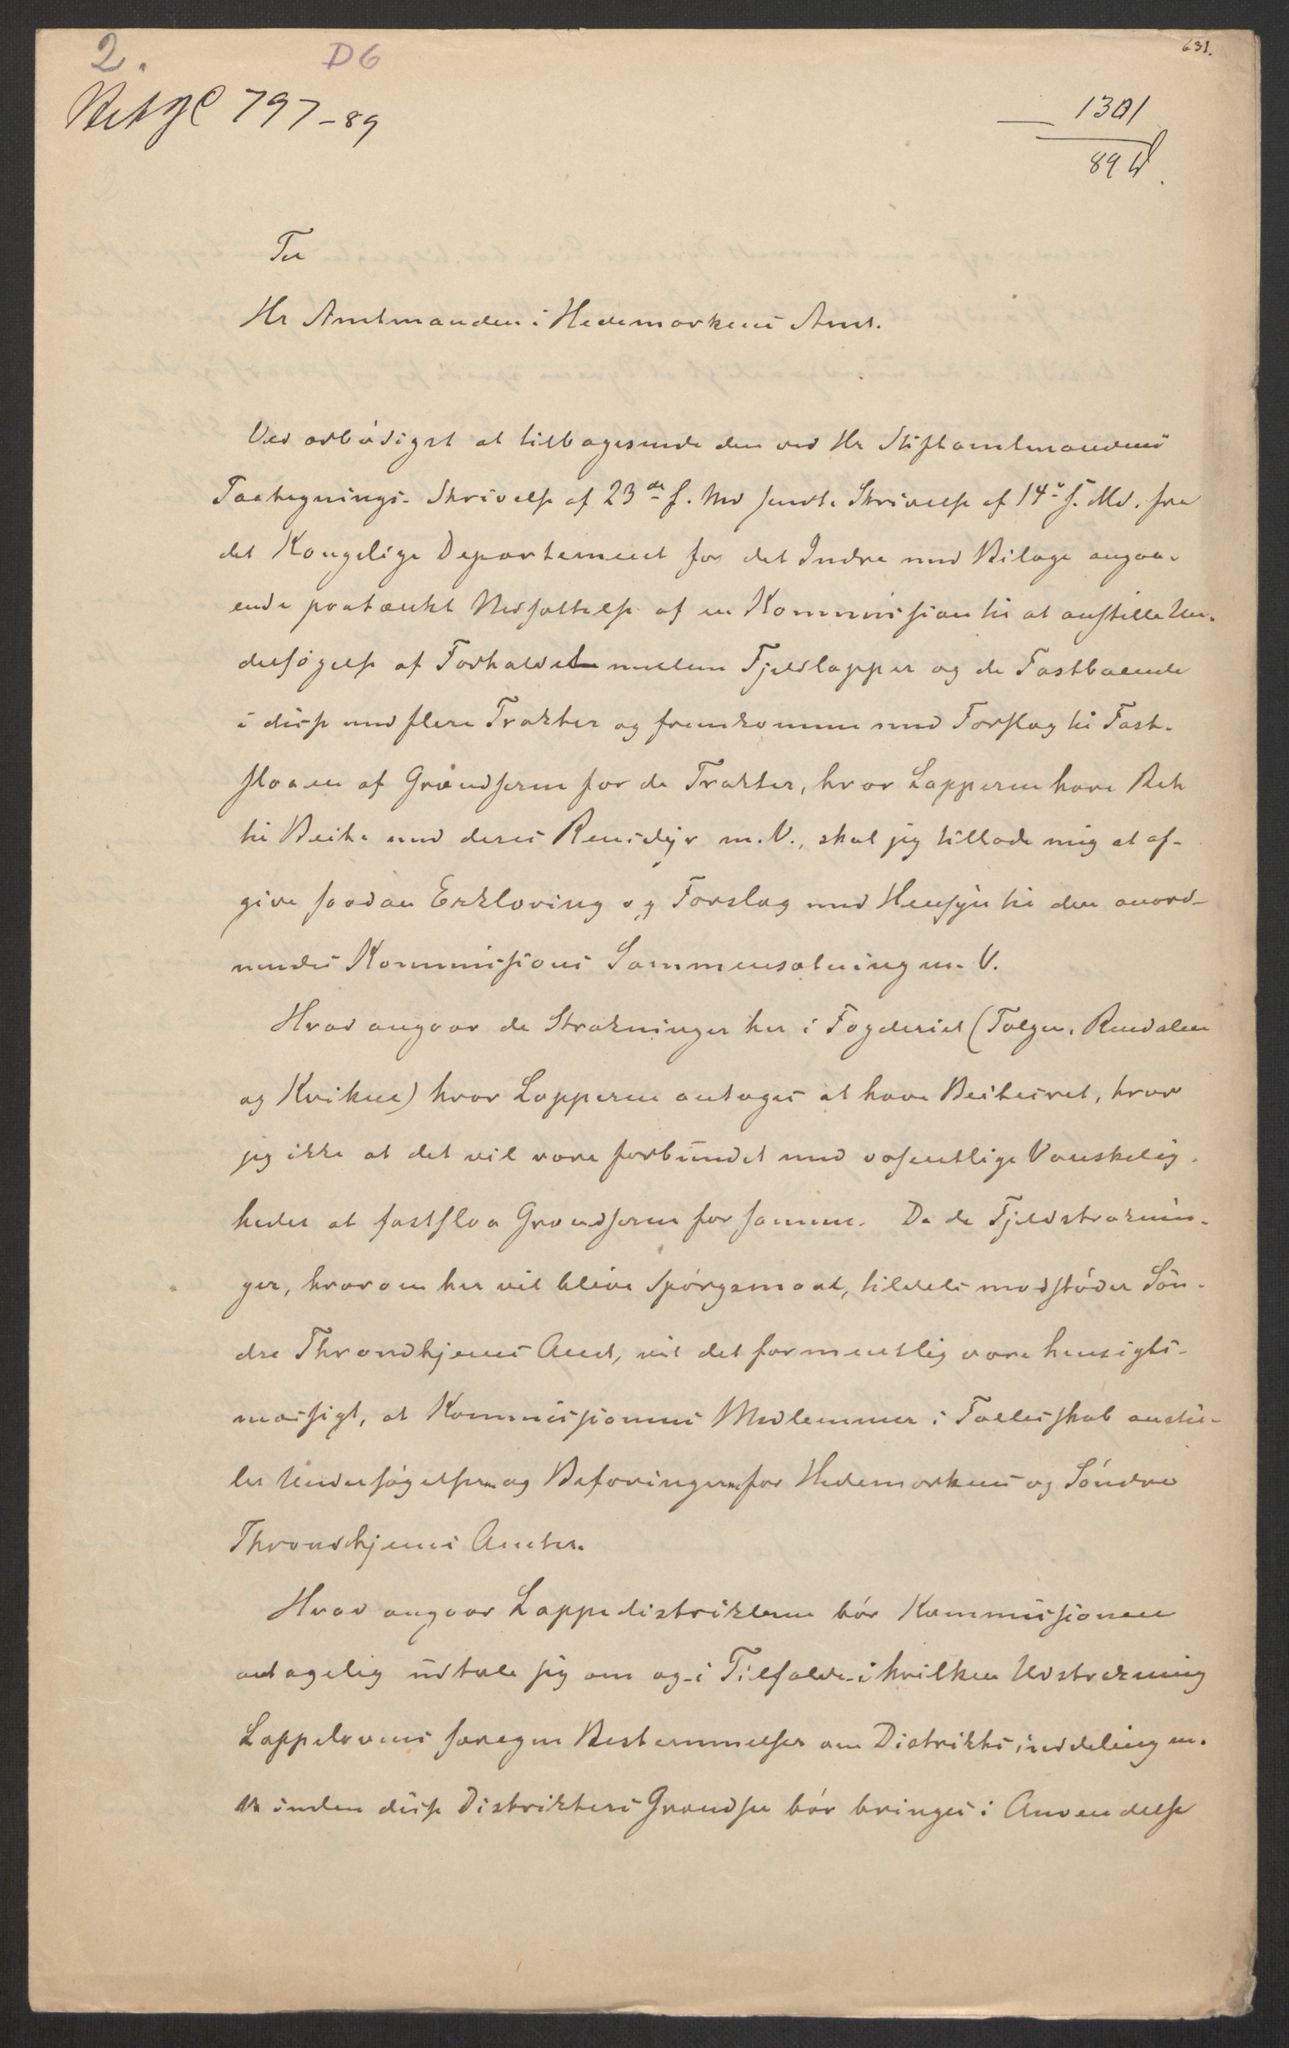 631.
2.
D 6
797-89
1301
89
Til
Hr Amtmanden i Hedemarkens Amt.
Ved ærbødigst at tilbagesende den ved Hr Stiftamtmandens
Paategnings-Skrivelse af 23de f. Md sendte Skrivelse af 14de f. Md. fra
det Kongelige Departement for det Indre med Bilage angaa-
ende paatænkt Nedsættelse af en Kommission til at anstille Un-
dersøgelse af Forholdet mellem Fjeldlapper og de Fastboende
i disse med flere Trakter og fremkomme med Forslag til Fast-
slaaen af Grændserne for de Trakter, hvor Lapperne have Ret
til Beite med deres Rensdyr m. V., skal jeg tillade mig at af-
give saadan Erklæring og Forslag med Hensyn til den anord-
nendes Kommissions Sammensætning m. V.
Hvad angaar de Strækninger her i Fogderiet (Tolgen, Rendalen
og Kvikne) hvor Lapperne antages at have Beitesret, tror
jeg ikke at det vil være forbundet med væsentlige Vanskelig-
heder at fastslaa Grændserne for samme. Da de Fjeldstræknin-
ger, hvorom her vil blive Spørgsmaal, tildels modstøder Søn-
dre Throndhjems Amt, vil det formentlig være hensigts-
mæssigt, at Kommissionens Medlemmer i Fællesskab anstil-
ler Undersøgelserne og Befaringerne for Hedemarkens og Søndre
Throndhjems Amter.
Hvad angaar Lappedistrikterne bør Kommissionen
antagelig udtale sig om og i Tilfælde i hvilken Udstrækning
Lappelovens foregne Bestemmelser om Distriktsinddeling m.
V. inden disse Distrikters Grændser bør bringes i Anvendelse